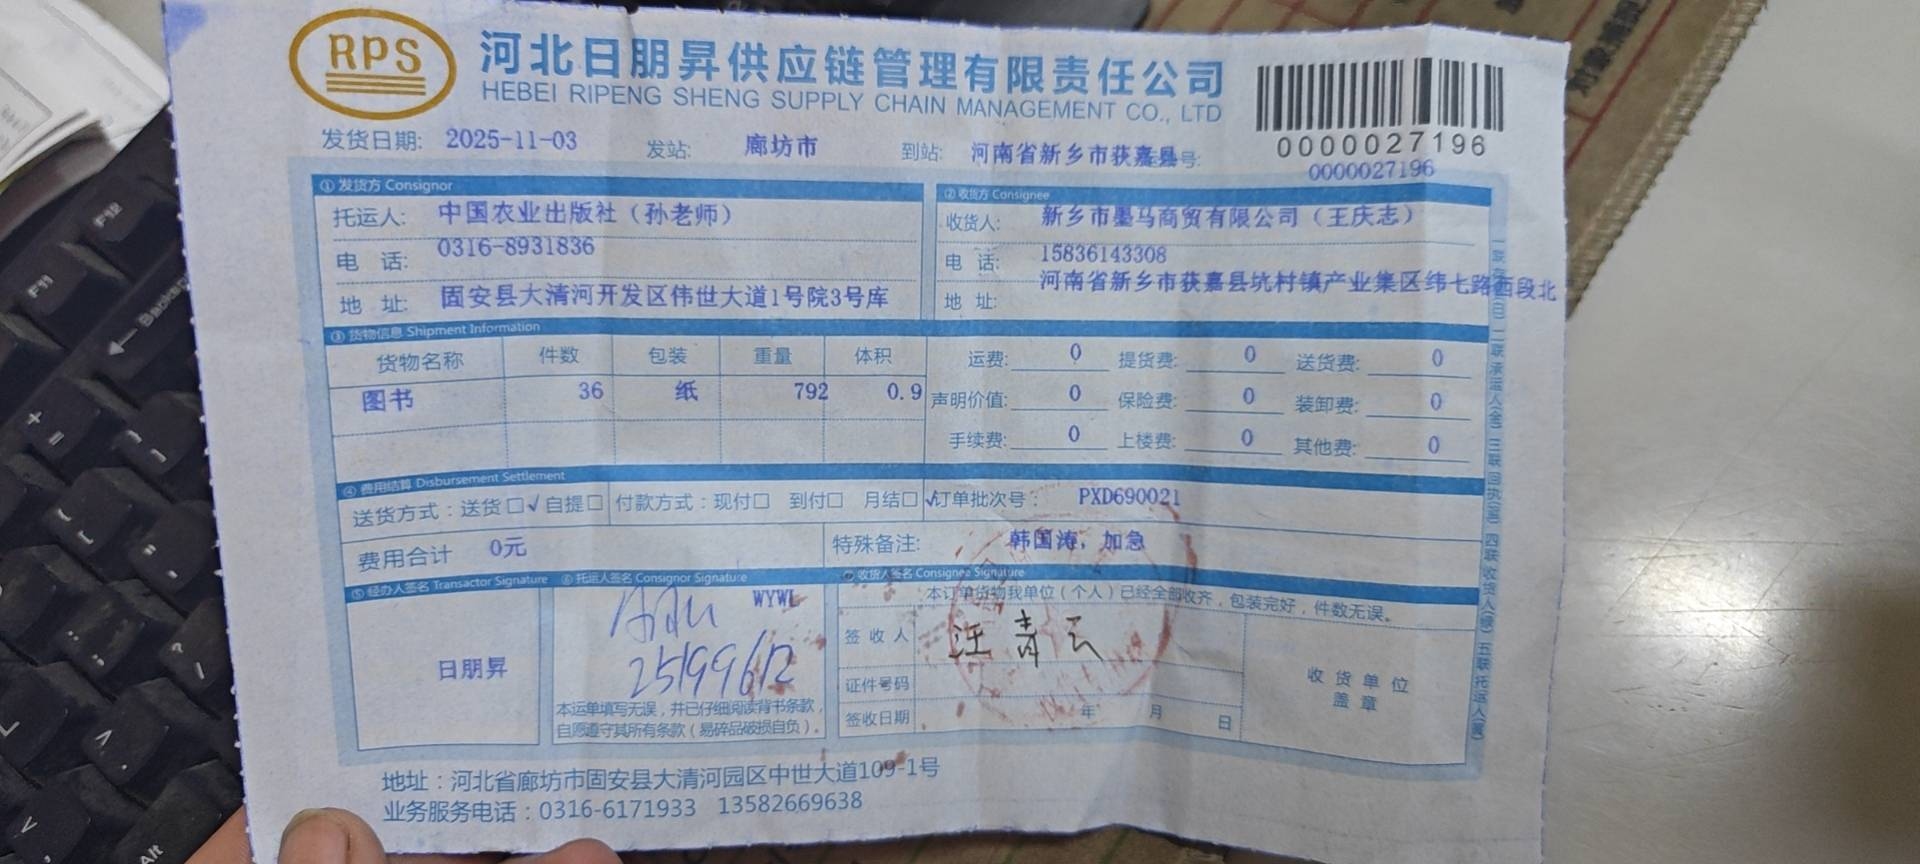 RPS
河北日朋昇供应链管理有限责任公司
HEBEI RIPENG SHENG SUPPLY CHAIN MANAGEMENT CO., LTD
0000027196
发货日期: 2025-11-03 发站: 廊坊市 到站: 河南省新乡市获嘉县号: 0000027196
① 发货方 Consignor
托运人: 中国农业出版社（孙老师）
电 话: 0316-8931836
地 址: 固安县大清河开发区伟世大道1号院3号库
② 收货方 Consignee
收货人: 新乡市墨马商贸有限公司（王庆志）
电 话: 15836143308
地 址: 河南省新乡市获嘉县坑村镇产业集区纬七路西段北
③ 货物信息 Shipment Information
货物名称 件数 包装 重量 体积
图书 36 纸 792 0.9
运费: 0 提货费: 0 送货费: 0
声明价值: 0 保险费: 0 装卸费: 0
手续费: 0 上楼费: 0 其他费: 0
④ 费用结算 Disbursement Settlement
送货方式：送货□√自提□ 付款方式：现付□ 到付□ 月结□√订单批次号： PXD690021
费用合计 0元 特殊备注: 韩国涛，加急
⑤ 经办人签名 Transactor Signature
日朋昇
⑥ 托运人签名 Consignor Signature
WYWL
本运单填写无误，并已仔细阅读背书条款，
自愿遵守其所有条款（易碎品破损自负）。
⑦ 收货人签名 Consignee Signature
本订单货物我单位（个人）已经全部收齐，包装完好，件数无误。
签 收 人 汪青云
证件号码
签收日期 年 月 日
收 货 单 位
盖 章
地址：河北省廊坊市固安县大清河园区中世大道109-1号
业务服务电话：0316-6171933 13582669638
F12
F11
Alt